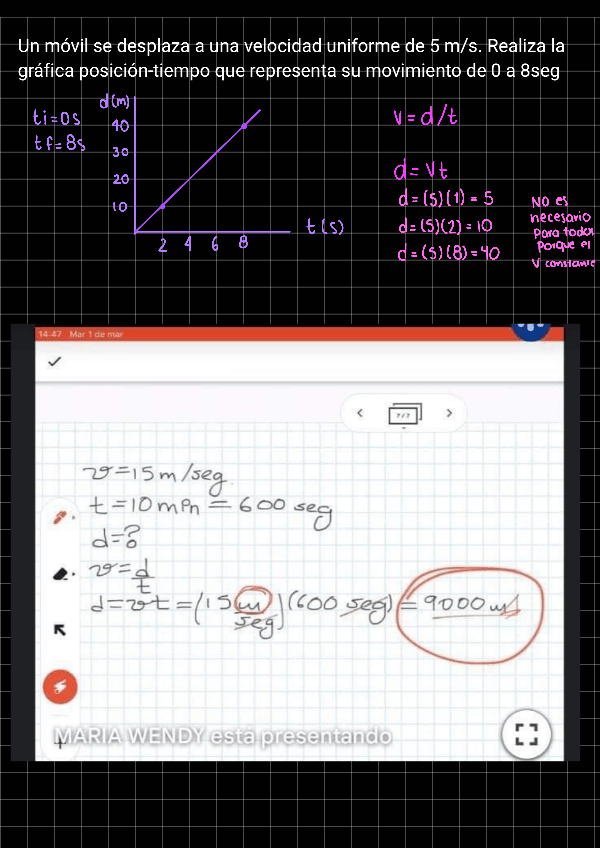 Un móvil se desplaza a una velocidad uniforme de 5 m/s. Realiza la
gráfica posición-tiempo que representa su movimiento de 0 a 8seg
ti=0s
tf=8s
d(m)
40
30
20
10
2 4 6 8
t(s)
v=d/t
d=vt
d=(5)(1)=5
d=(5)(2)=10
d=(5)(8)=40
NO es
necesario
para todos
porque el
V constante
14:47 Mar 1 de mar
v=15m/seg
t=10min=600 seg
d=?
v=d/t
d=vt=(15 m/seg)(600 seg)=9000 m
MARIA WENDY está presentando